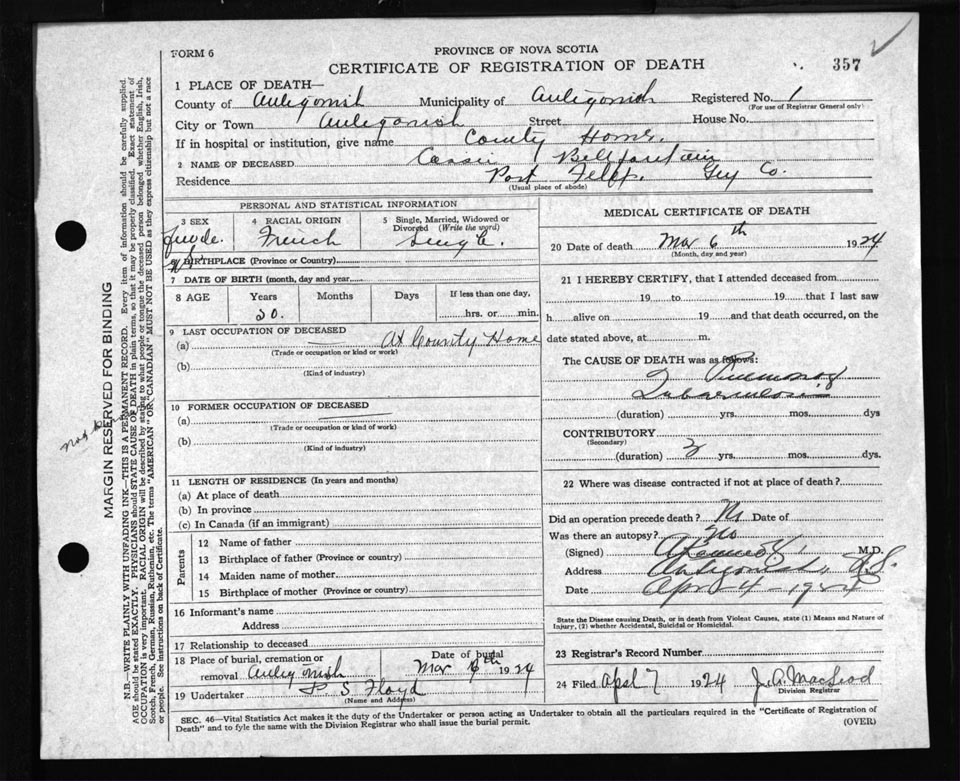 FORM 6
PROVINCE OF NOVA SCOTIA
CERTIFICATE OF REGISTRATION OF DEATH
357
1 PLACE OF DEATH—
County of Antigonish Municipality of Antigonish Registered No. 1
(For use of Registrar General only)
City or Town Antigonish Street House No.
If in hospital or institution, give name County Home.
2 NAME OF DECEASED
Residence Port Felix. Guy Co.
(Usual place of abode)
PERSONAL AND STATISTICAL INFORMATION
3 SEX
4 RACIAL ORIGIN French
5 Single, Married, Widowed or Divorced (Write the word) Single.
6 BIRTHPLACE (Province or Country)
7 DATE OF BIRTH (month, day and year)
8 AGE Years Months Days If less than one day,
hrs. or min.
9 LAST OCCUPATION OF DECEASED
(a) At County Home
(Trade or occupation or kind or work)
(b)
(Kind of industry)
10 FORMER OCCUPATION OF DECEASED
(a)
(Trade or occupation or kind or work)
(b)
(Kind of industry)
11 LENGTH OF RESIDENCE (In years and months)
(a) At place of death
(b) In province
(c) In Canada (if an immigrant)
Parents
12 Name of father
13 Birthplace of father (Province or country)
14 Maiden name of mother
15 Birthplace of mother (Province or country)
16 Informant's name
Address
17 Relationship to deceased
18 Place of burial, cremation or removal Antigonish
Date of burial
Mar 1924
19 Undertaker S Floyd
(Name and Address)
MEDICAL CERTIFICATE OF DEATH
20 Date of death Mar 6th 1924
(Month, day and year)
21 I HEREBY CERTIFY, that I attended deceased from
19 to 19 that I last saw
h alive on 19 and that death occurred, on the
date stated above, at m.
The CAUSE OF DEATH was as follows:
Pulmonary
Tuberculosis
(duration) yrs. mos. dys
CONTRIBUTORY
(Secondary)
(duration) yrs. mos. dys.
22 Where was disease contracted if not at place of death?
Did an operation precede death? No Date of
Was there an autopsy? No
(Signed) M.D.
Address Antigonish, N.S.
Date Apr 4 - 1924
State the Disease causing Death, or in death from Violent Causes, state (1) Means and Nature of
Injury, (2) whether Accidental, Suicidal or Homicidal.
23 Registrar's Record Number
24 Filed April 7 1924 J. A. MacLeod
Division Registrar
SEC. 46—Vital Statistics Act makes it the duty of the Undertaker or person acting as Undertaker to obtain all the particulars required in the "Certificate of Registration of
Death" and to fyle the same with the Division Registrar who shall issue the burial permit.
(OVER)
MARGIN RESERVED FOR BINDING
N.B.—WRITE PLAINLY WITH UNFADING INK—THIS IS A PERMANENT RECORD. Every item of information should be carefully supplied.
AGE should be stated EXACTLY. PHYSICIANS should STATE CAUSE OF DEATH in plain terms, so that it may be properly classified. Exact statement of
OCCUPATION is very important. RACIAL ORIGIN will be described by stating to what people or tongue the deceased person belonged whether English, Irish,
Scotch, French, German, Russian, Ruthenian, etc. The terms "AMERICAN" OR "CANADIAN" MUST NOT BE USED as they express citizenship but not a race
or people. See instructions on back of Certificate.